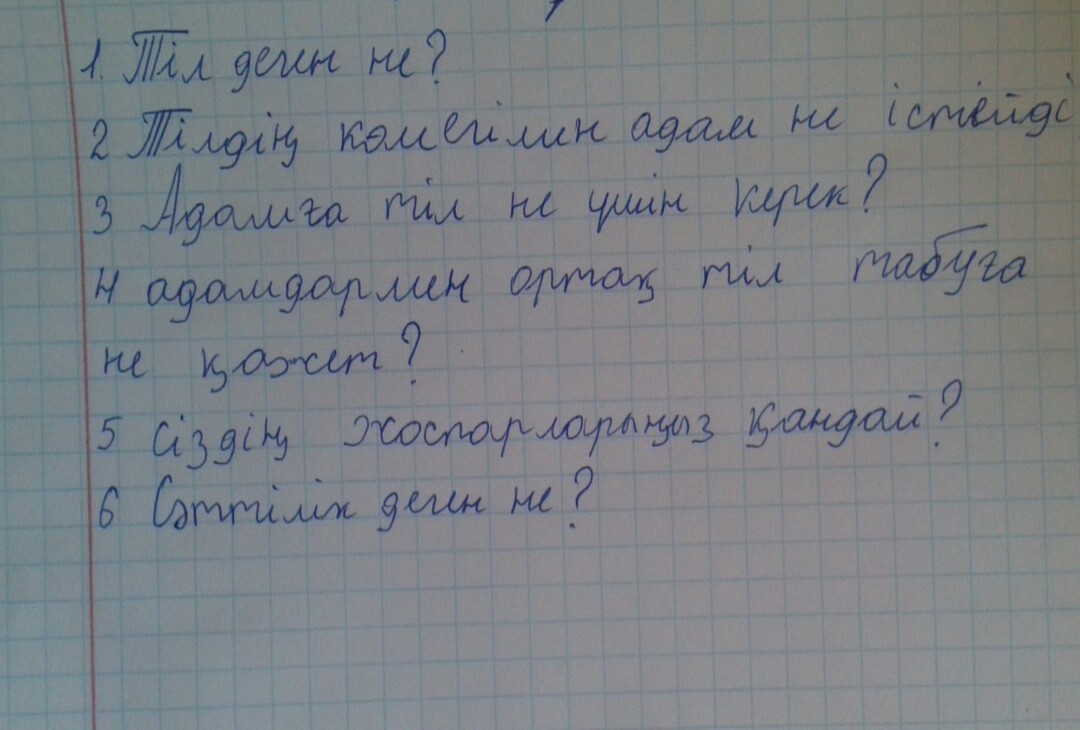 1. Тіл деген не?
2 Тілдің көмегімен адам не істейді
3 Адамға тіл не үшін керек?
4 адамдармен ортақ тіл табуға
не қажет?
5 Сіздің жоспарларыңыз қандай?
6 Сәттілік деген не?